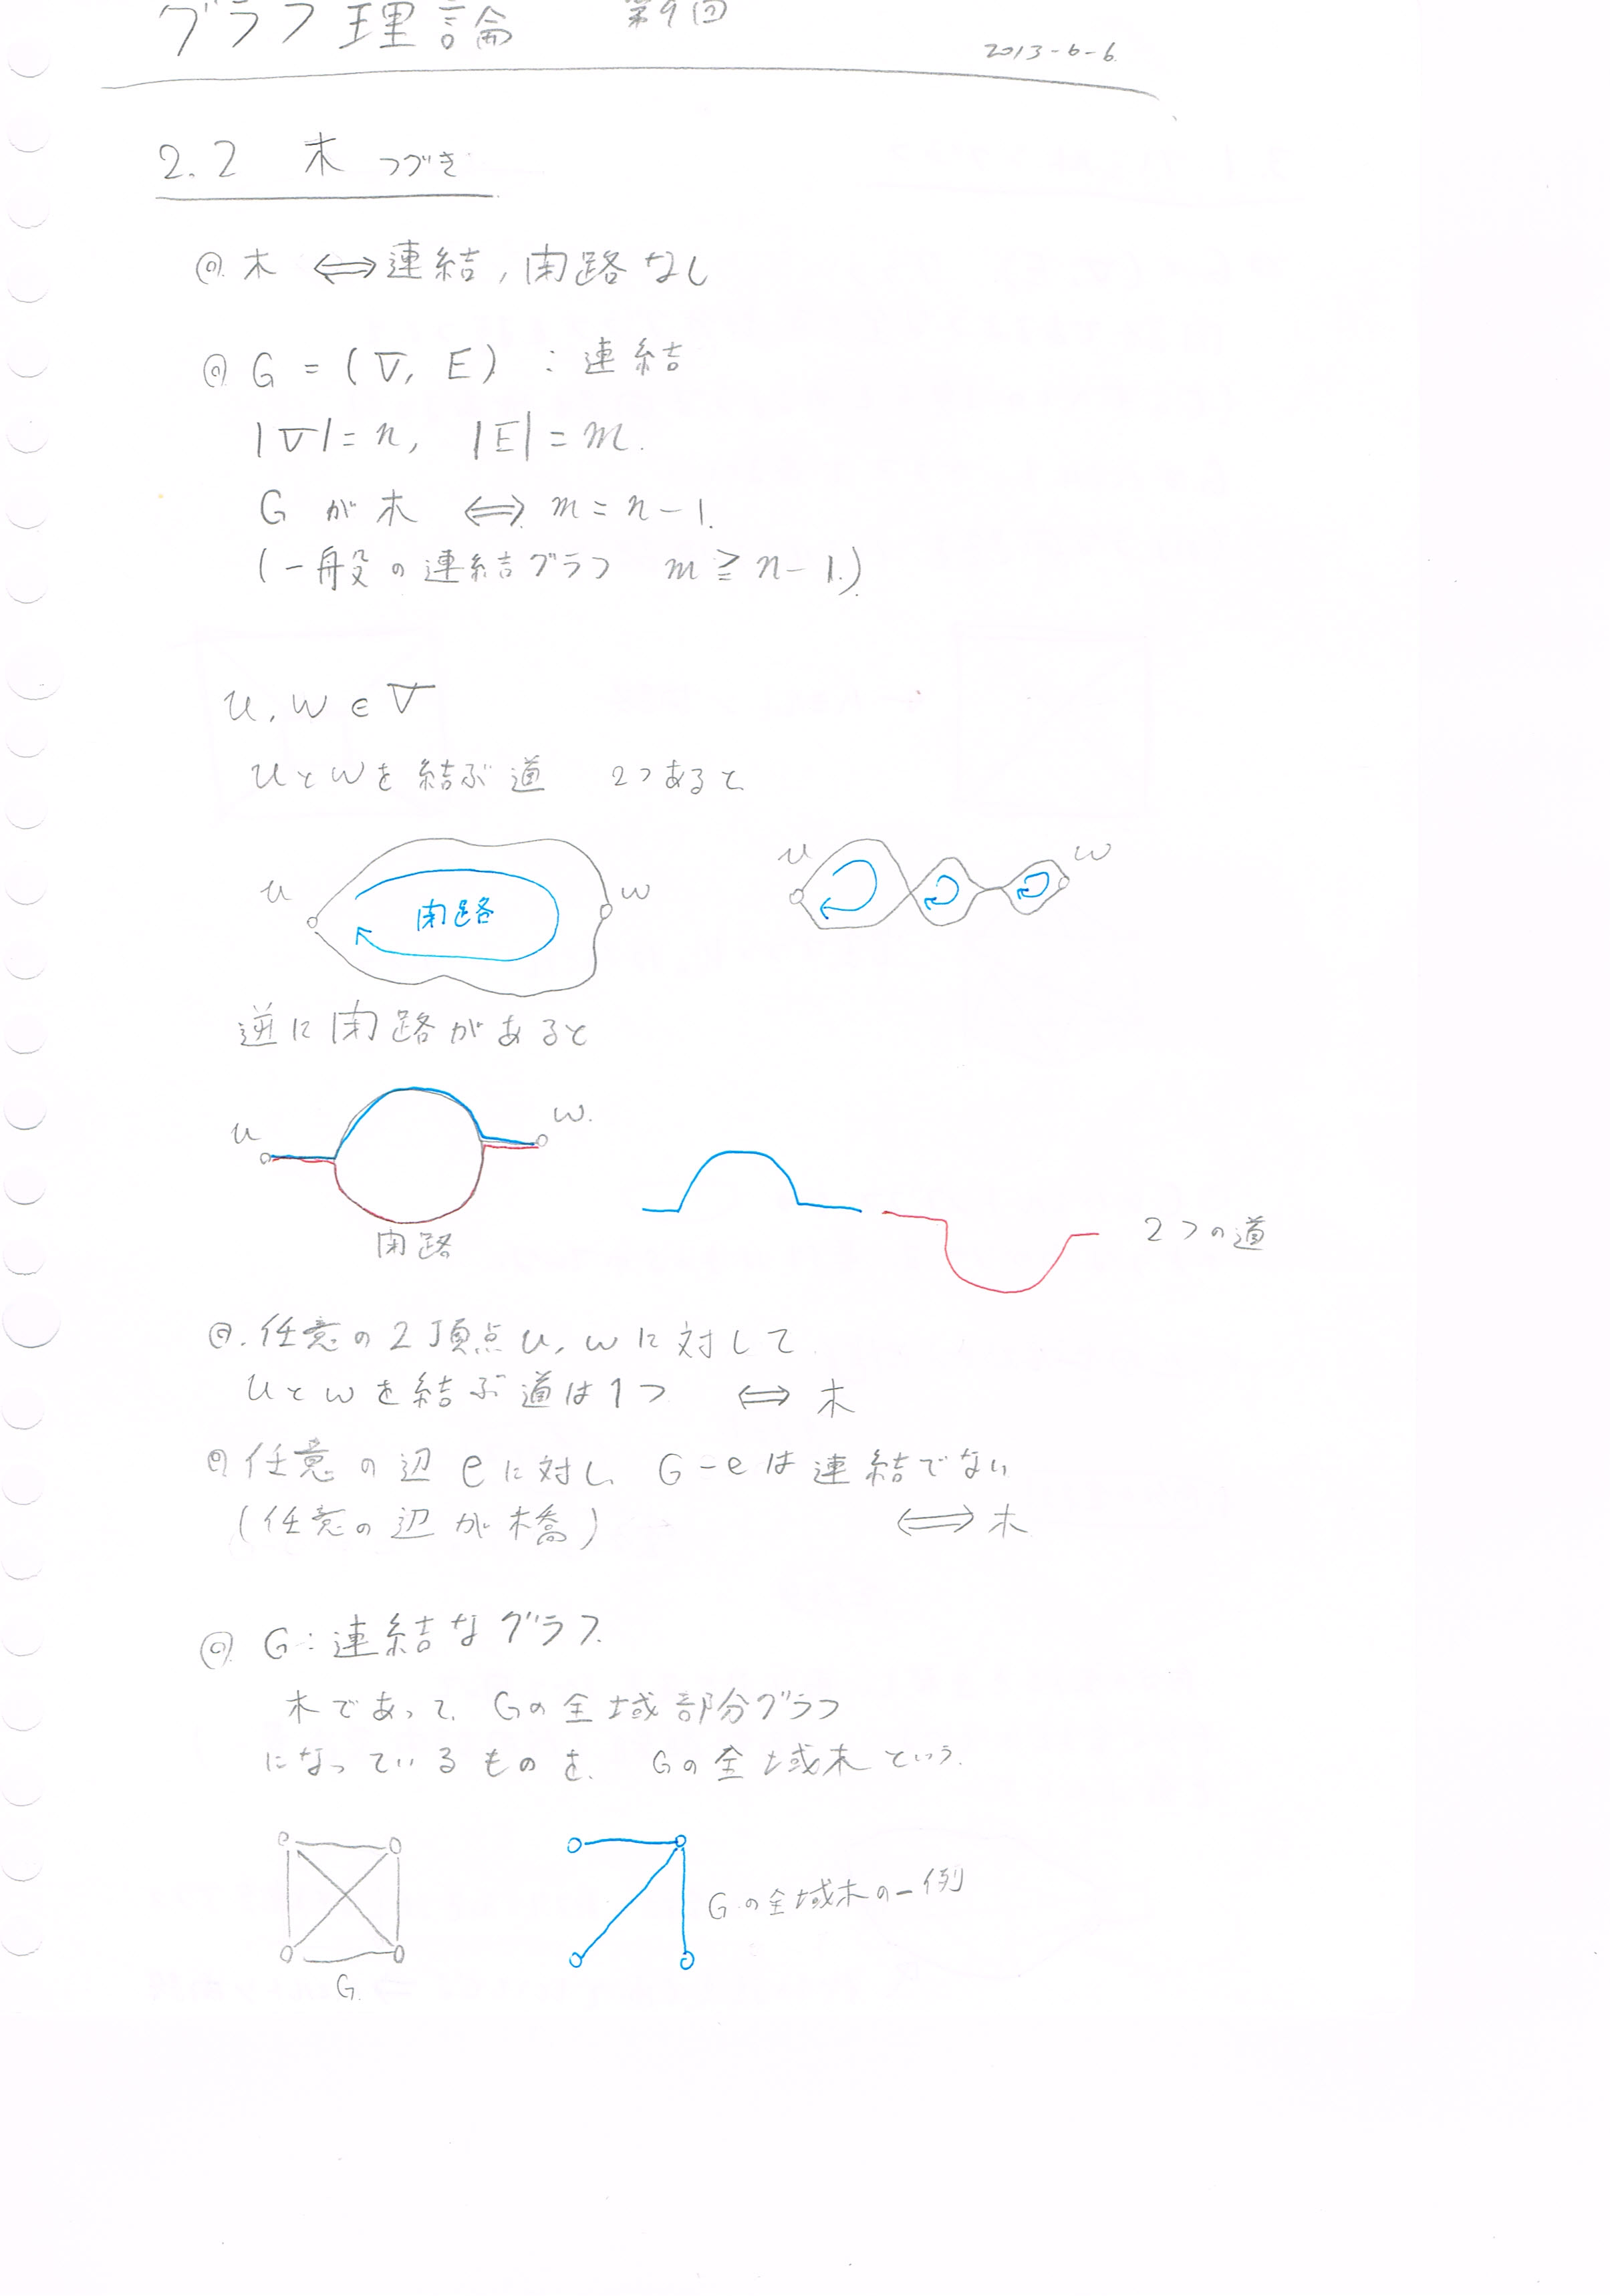 グラフ理論 第9回
2013-6-6.
2.2 木 つづき
◎ 木 ⟺ 連結, 閉路なし
◎ G = (V, E) : 連結
|V| = n, |E| = m.
G が 木 ⟺ m = n-1.
(一般の連結グラフ m ≧ n-1.)
u, w ∈ V
uとwを結ぶ道 2つあると
u 閉路 w
u w
逆に閉路があると
u w.
閉路
2つの道
◎. 任意の2頂点u, wに対して
uとwを結ぶ道は1つ ⟺ 木
◎ 任意の辺eに対し G-eは連結でない
(任意の辺が橋) ⟺ 木
◎ G:連結なグラフ
木であって、Gの全域部分グラフ
になっているものを、Gの全域木という.
Gの全域木の一例
G.